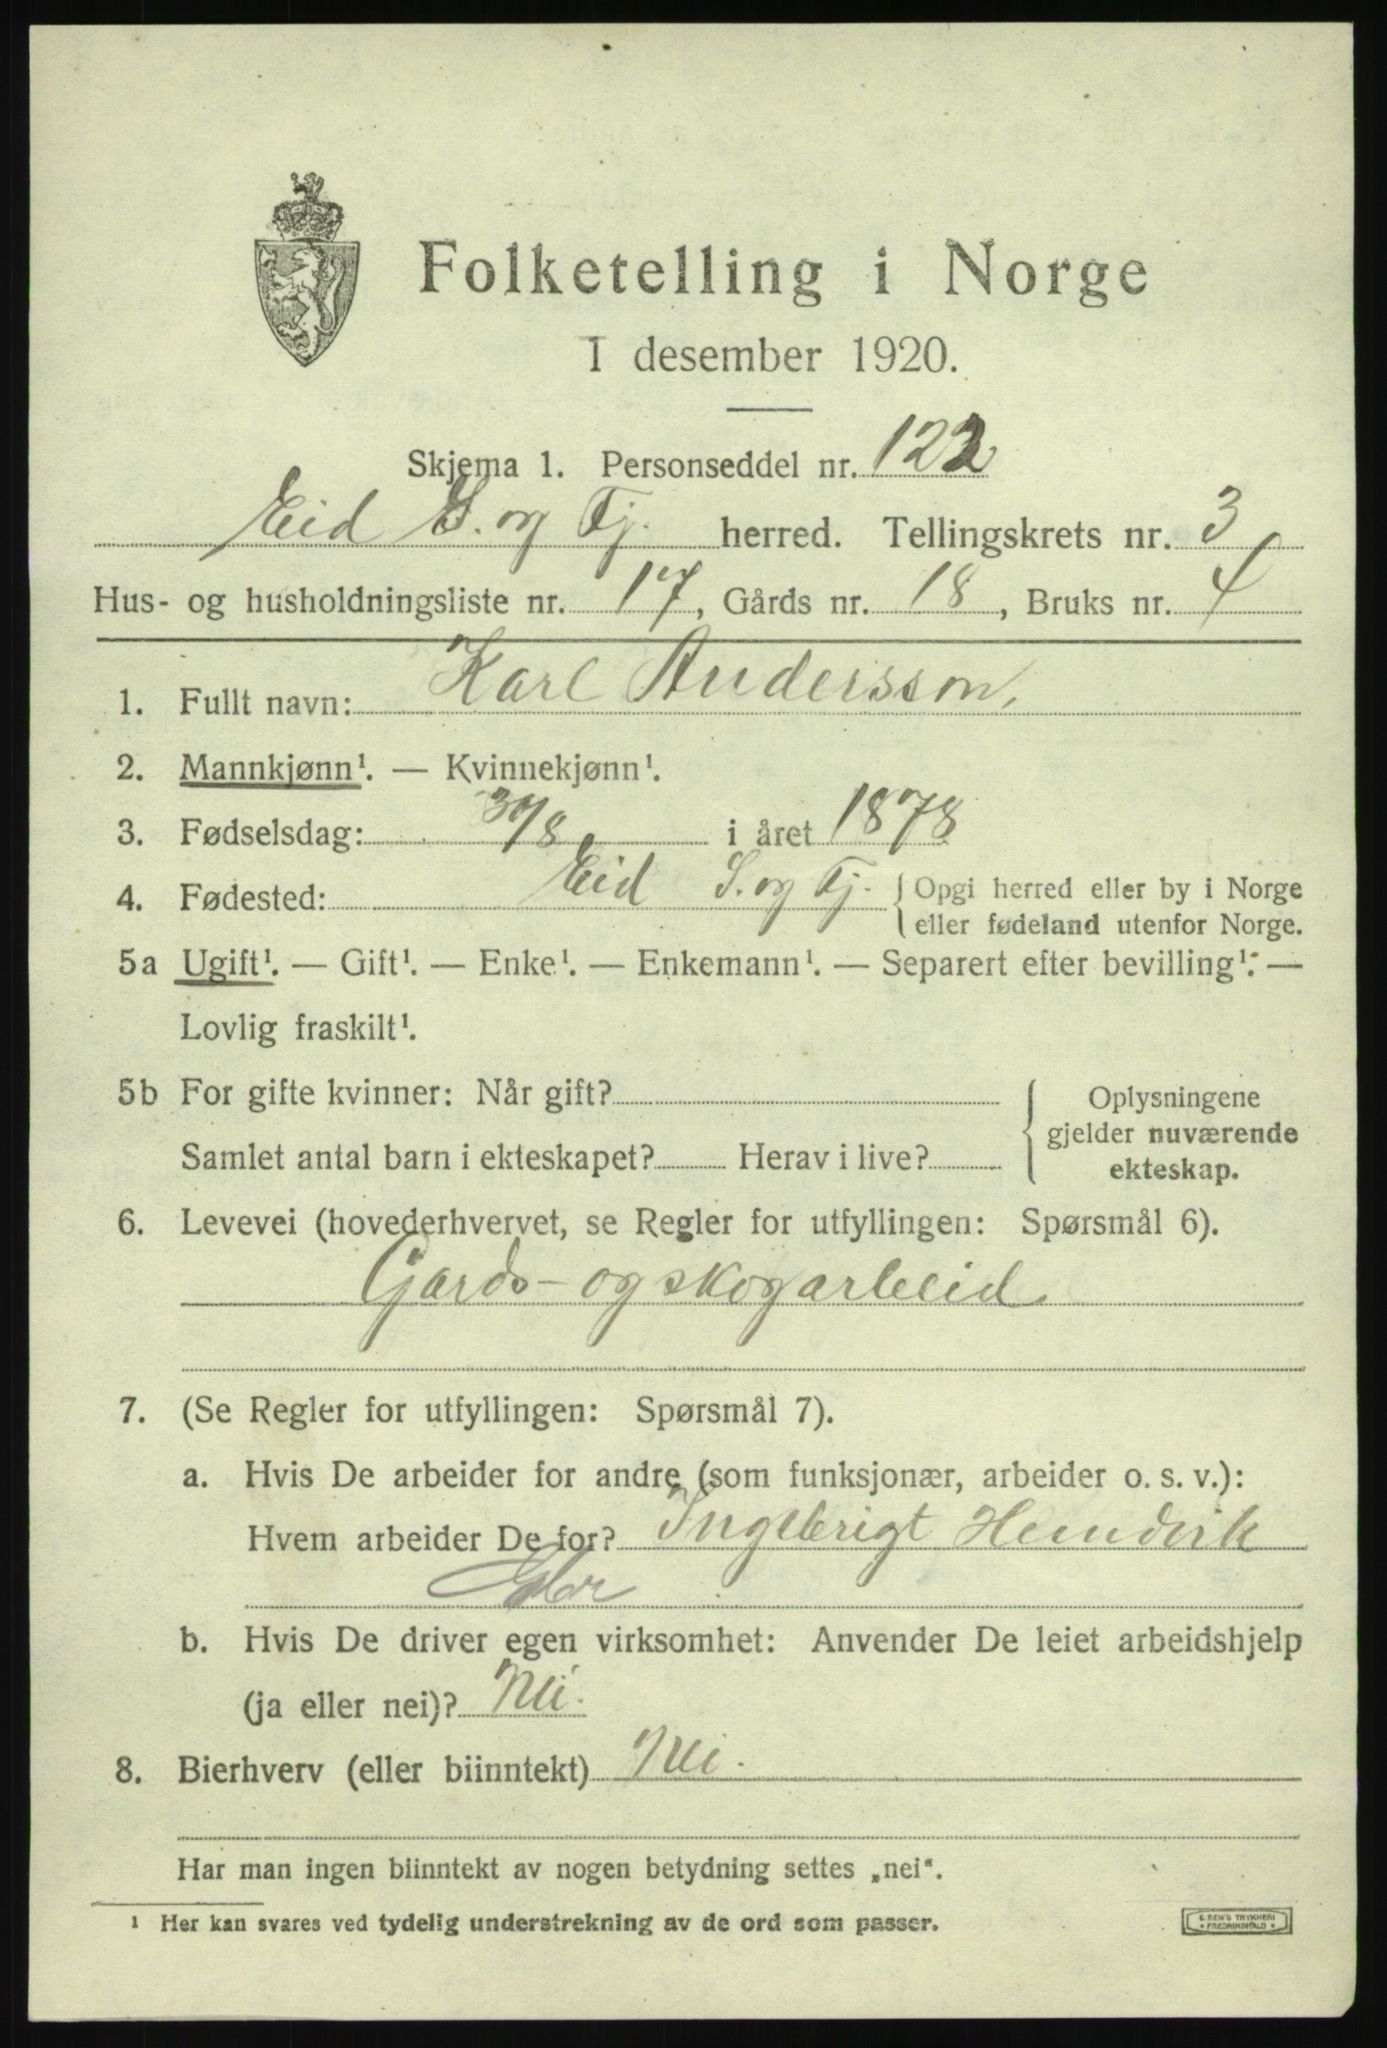 Folketelling i Norge
1 desember 1920.
Skjema 1. Personseddel nr. 122
Eid S. og Fj. herred. Tellingskrets nr. 3
Hus- og husholdningsliste nr. 17, Gårds nr. 18, Bruks nr. 4
1. Fullt navn: Karl Andersson,
2. Mannkjønn¹. — Kvinnekjønn¹.
3. Fødselsdag: 30/8 i året 1878
4. Fødested: Eid S. og Fj. Opgi herred eller by i Norge
eller fødeland utenfor Norge.
5a Ugift¹. — Gift¹. — Enke¹. — Enkemann¹. — Separert efter bevilling¹. —
Lovlig fraskilt¹.
5b For gifte kvinner: Når gift?
Samlet antal barn i ekteskapet? Herav i live?
Oplysningene
gjelder nuværende
ekteskap.
6. Levevei (hovederhvervet, se Regler for utfyllingen: Spørsmål 6).
Gards- og skogarbeid
7. (Se Regler for utfyllingen: Spørsmål 7).
a. Hvis De arbeider for andre (som funksjonær, arbeider o. s. v.):
Hvem arbeider De for? Ingebrigt Hemdvik
Gbr
b. Hvis De driver egen virksomhet: Anvender De leiet arbeidshjelp
(ja eller nei)? Nei.
8. Bierhverv (eller biinntekt) Nei.
Har man ingen biinntekt av nogen betydning settes „nei“.
¹ Her kan svares ved tydelig understrekning av de ord som passer.
E. SEM'S TRYKKERI
FREDRIKSHALD